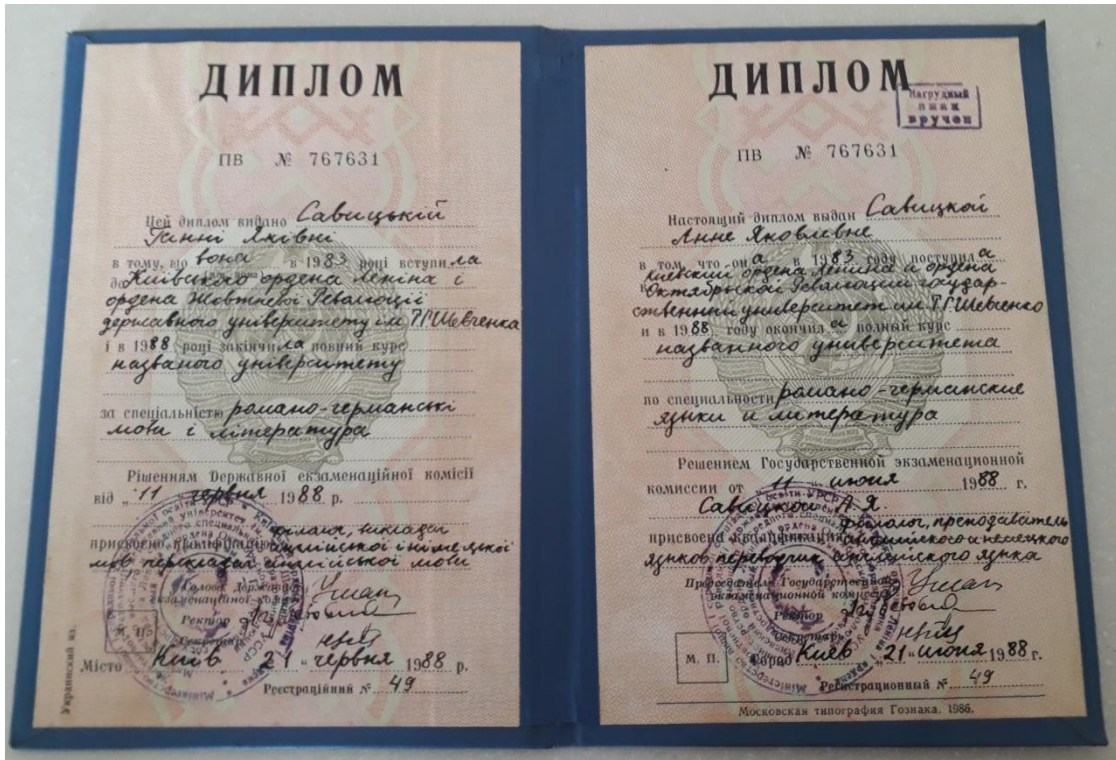 ДИПЛОМ
ПВ № 767631
Цей диплом видано Савицькій
Ганні Яківні
в тому, що вона в 1983 році вступила
до Київського ордена Леніна і
ордена Жовтневої Революції
державного університету ім Т.Г.Шевченка
і в 1988 році закінчила повний курс
названого університету
за спеціальністю романо-германські
мови і література
Рішенням Державної екзаменаційної комісії
від „11 червня 1988 р.
філолог, викладач
присвоєно кваліфікацію англійської і німецької
мов перекладач англійської мови
Голова Державної
екзаменаційної комісії
Ректор
Секретар
М. П.
Місто Київ 21 „ червня 1988 р.
Реєстраційний № 49
Украинский яз.
ДИПЛОМ
Нагрудный
знак
вручен
ПВ № 767631
Настоящий диплом выдан Савицкой
Анне Яковлевне
в том, что она в 1983 году поступила
в Киевский ордена Ленина и ордена
Октябрьской Революции государ-
ственный университет им Т.Г.Шевченко
и в 1988 году окончила полный курс
названного университета
по специальности романо-германские
языки и литература
Решением Государственной экзаменационной
комиссии от „11 “ июня 1988 г.
Савицкой А.Я.
филолог, преподаватель
присвоена квалификация английского и немецкого
языков переводчик английского языка
Председатель Государственной
экзаменационной комиссии
Ректор
Секретарь
М. П.
Город Киев 21 „ июня 1988 г.
Регистрационный № 49
Московская типография Гознака. 1986.